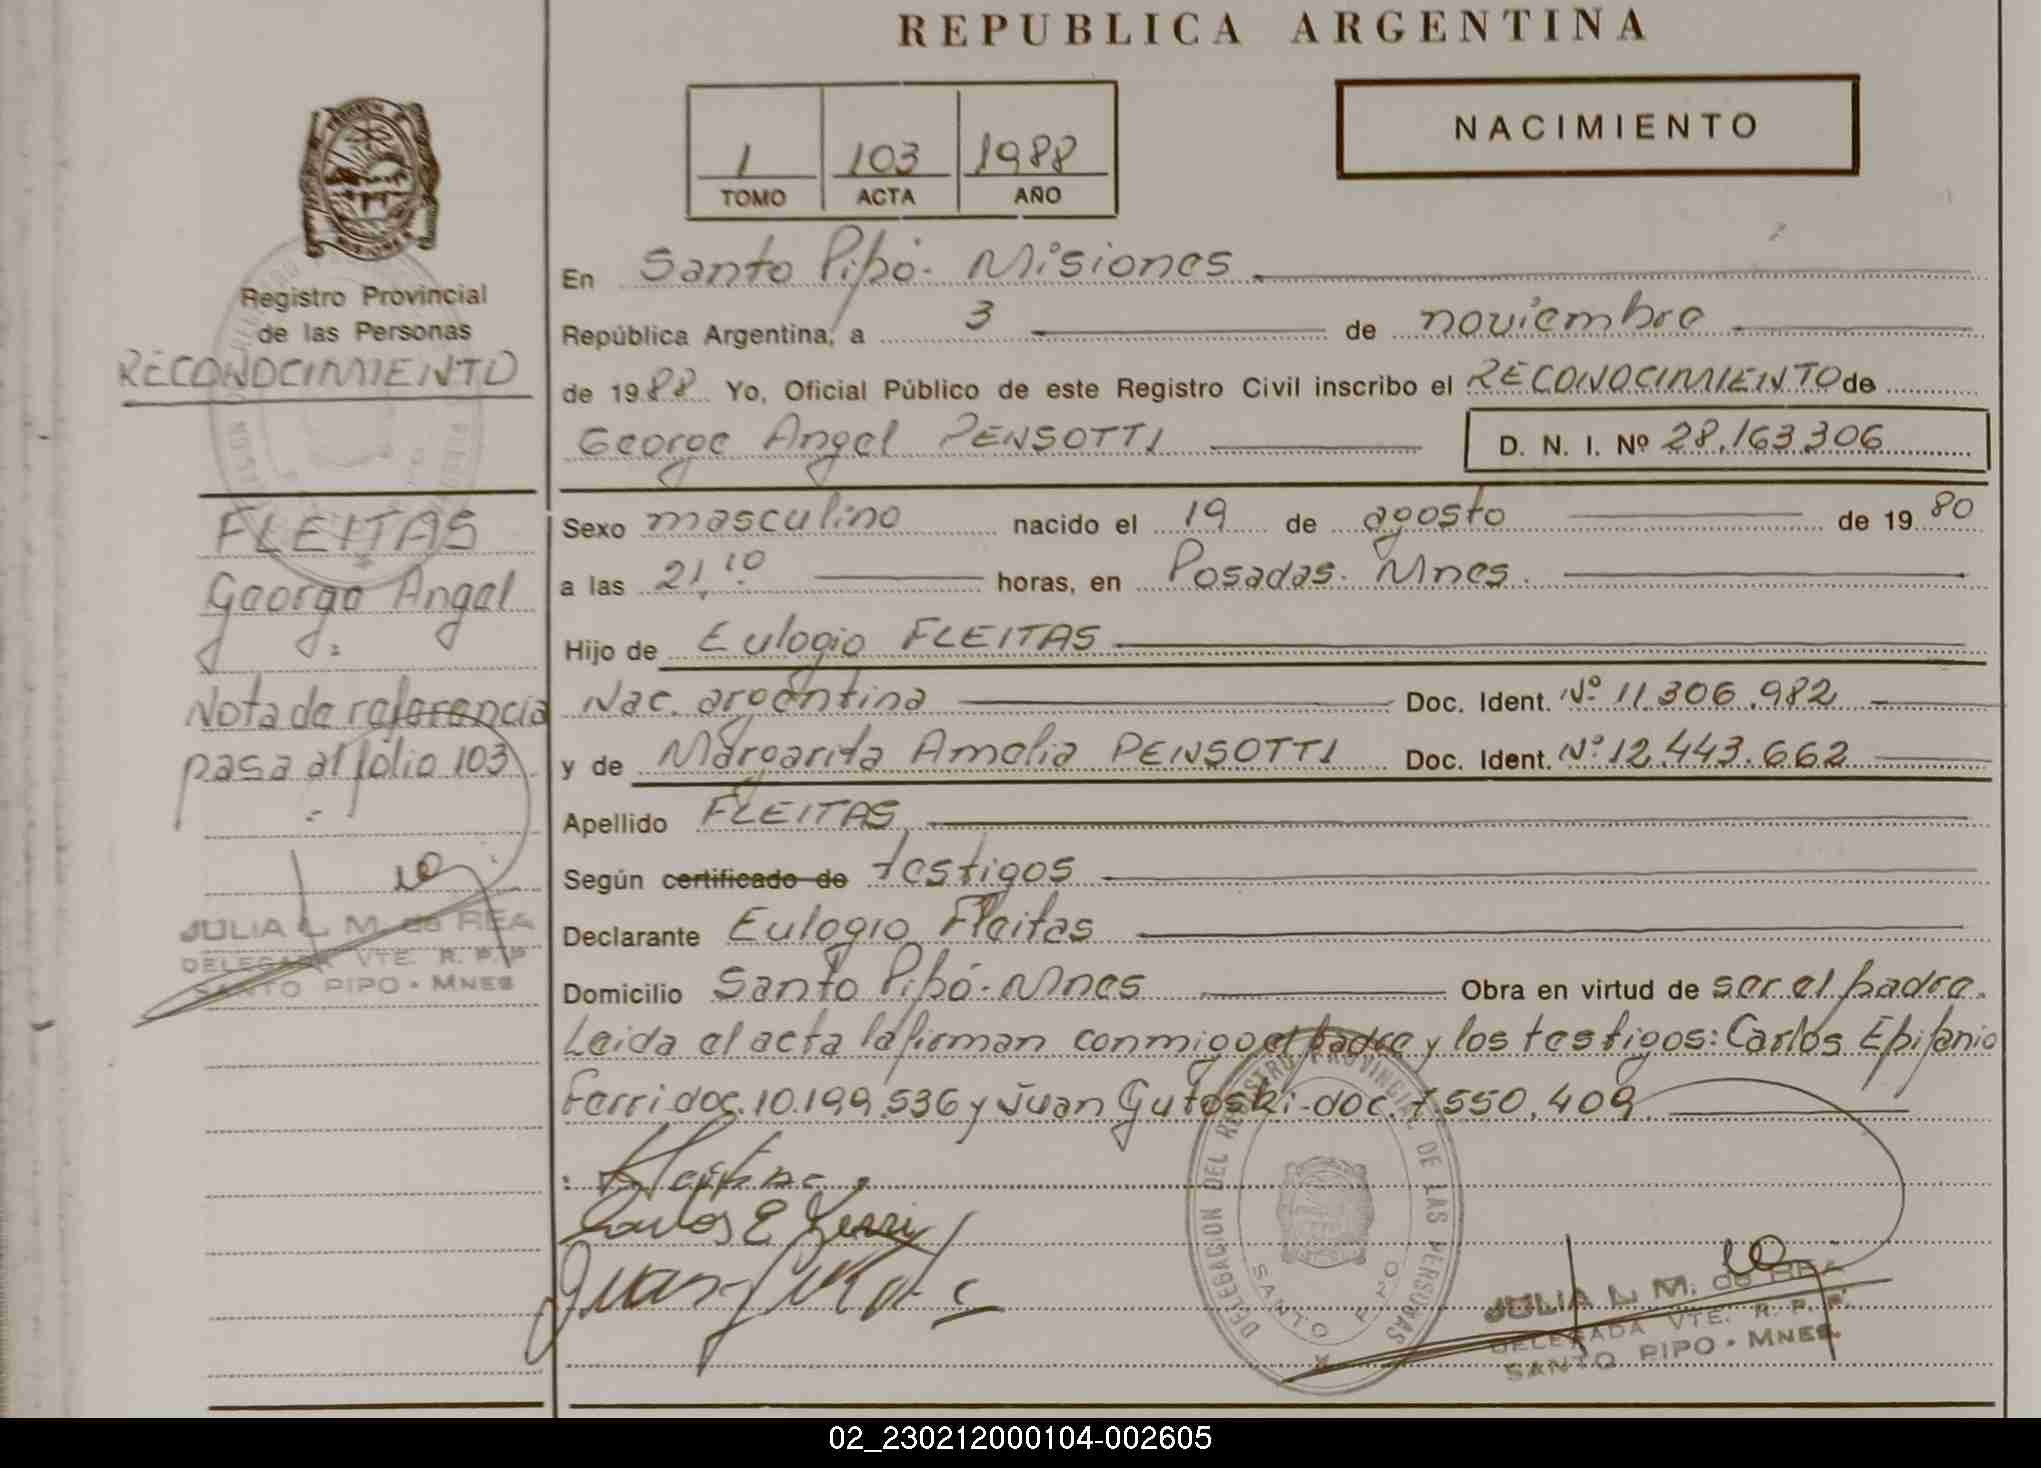 REPUBLICA ARGENTINA
NACIMIENTO
1 103 1988
TOMO ACTA AÑO
Registro Provincial
de las Personas
RECONOCIMIENTO
FLEITAS
George Angel
Nota de referencia
pasa al folio 103
JULIA L. M. de REA
DELEGADA VTE. R. P. P.
SANTO PIPO - MNES
En Santo Pipó - Misiones
República Argentina, a 3 de noviembre
de 1988 Yo, Oficial Público de este Registro Civil inscribo el RECONOCIMIENTO de
George Angel PENSOTTI D. N. I. Nº 28.163.306
Sexo masculino nacido el 19 de agosto de 19 80
a las 21,10 horas, en Posadas. Mnes.
Hijo de Eulogio FLEITAS
Nac. argentina Doc. Ident. Nº 11.306.982
y de Margarita Amelia PENSOTTI Doc. Ident. Nº 12.443.662
Apellido FLEITAS
Según certificado de testigos
Declarante Eulogio Fleitas
Domicilio Santo Pipó - Mnes Obra en virtud de ser el padre.
Leida el acta la firman conmigo el padre y los testigos: Carlos Epifanio
Ferri doc. 10.199.536 y Juan Gutoski - doc. 7.550.409
Fleitas
Carlos E Ferri
DELEGACION DEL REGISTRO PROVINCIAL DE LAS PERSONAS
SANTO PIPO
JULIA L. M. de REA
DELEGADA VTE. R. P. P.
SANTO PIPO - MNES.
02_230212000104-002605